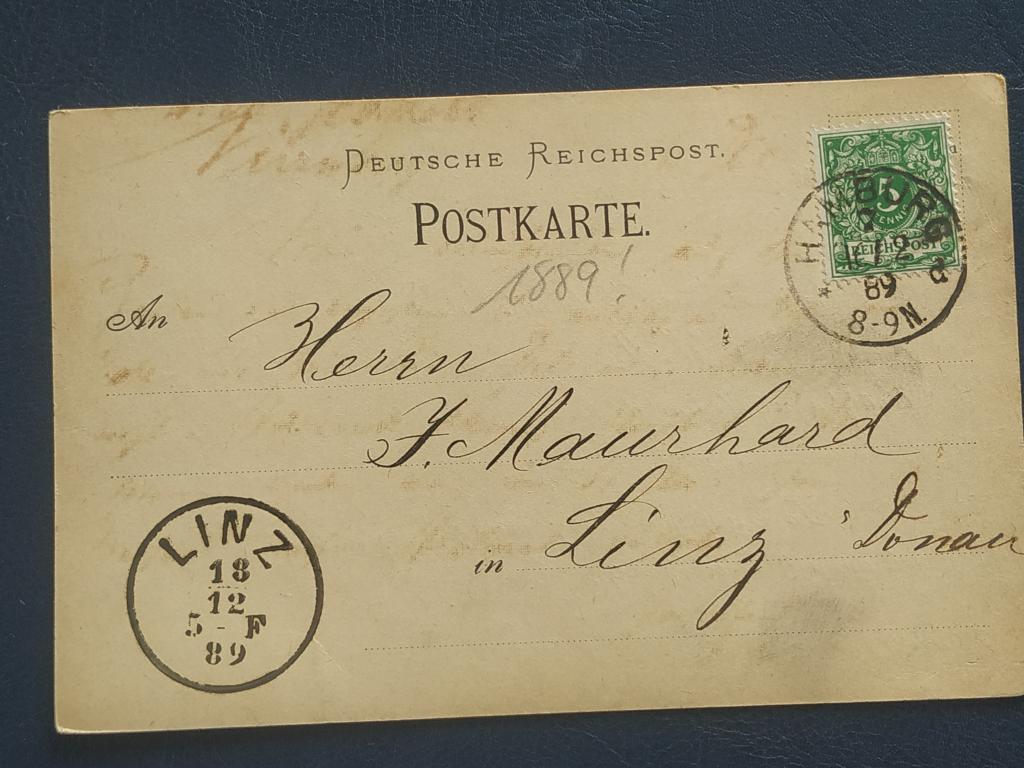 DEUTSCHE REICHSPOST.
POSTKARTE.
1889!
5
PFENNIG
REICHSPOST
HAMBURG
12
89
8-9N.
An Herrn
J. Maurhard
in Linz Donau
LINZ
18
12
5 - F
89